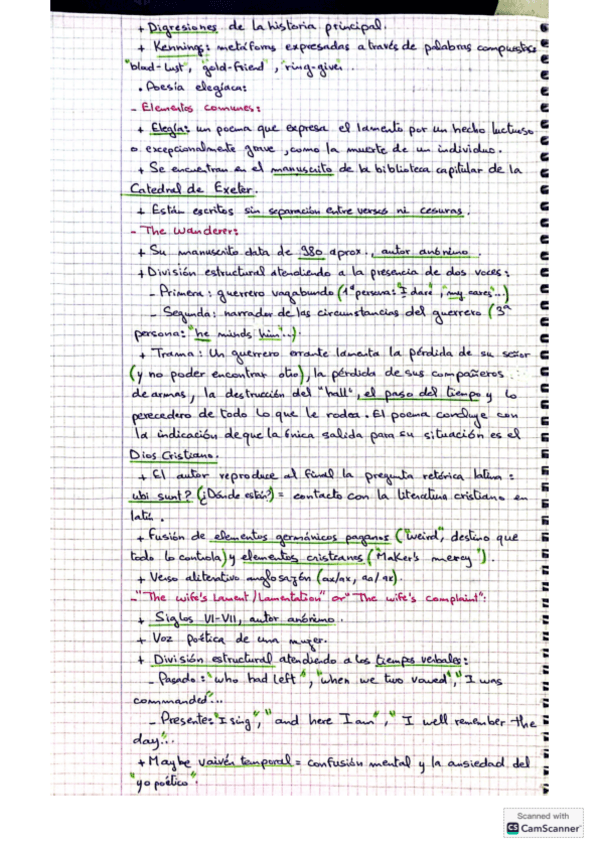 + Digresiones de la historia principal.
+ Kennings: metáforas expresadas a través de palabras compuestas
"blud-lust", "gold-friend", "ring-giver".
• Poesía elegíaca:
- Elementos comunes:
+ Elegía: un poema que expresa el lamento por un hecho luctuoso
o excepcionalmente grave, como la muerte de un individuo.
+ Se encuentran en el manuscrito de la biblioteca capitular de la
Catedral de Exeter.
+ Están escritos sin separación entre versos ni cesuras.
- The Wanderer:
+ Su manuscrito data de 980 aprox., autor anónimo.
+ División estructural atendiendo a la presencia de dos voces:
- Primera: guerrero vagabundo (1ª persona: "I dare", "my cares"...)
- Segunda: narrador de las circunstancias del guerrero (3ª
persona: "he minds him"...)
+ Trama: Un guerrero errante lamenta la pérdida de su señor
(y no poder encontrar otro), la pérdida de sus compañeros
de armas, la destrucción del "hall", el paso del tiempo y lo
perecedero de todo lo que le rodea. El poema concluye con
la indicación de que la única salida para su situación es el
Dios Cristiano.
+ El autor reproduce al final la pregunta retórica latina:
ubi sunt? (¿Dónde están?) = contacto con la literatura cristiana en
latín.
+ Fusión de elementos germánicos paganos ("weird", destino que
todo lo controla) y elementos cristianos ("Maker's mercy").
+ Verso aliterativo anglosajón (ax/ax, aa/ax).
- "The wife's Lament/Lamentation" or "The wife's complaint":
+ Siglos VI-VII, autor anónimo.
+ Voz poética de una mujer.
+ División estructural atendiendo a los tiempos verbales:
- Pasado: "who had left", "when we two vowed", "I was
commanded"...
- Presente: "I sing", "and here I am", "I well remember the
day"...
+ Maybe vaivén temporal = confusión mental y la ansiedad del
"yo poético".
Scanned with
CS CamScanner